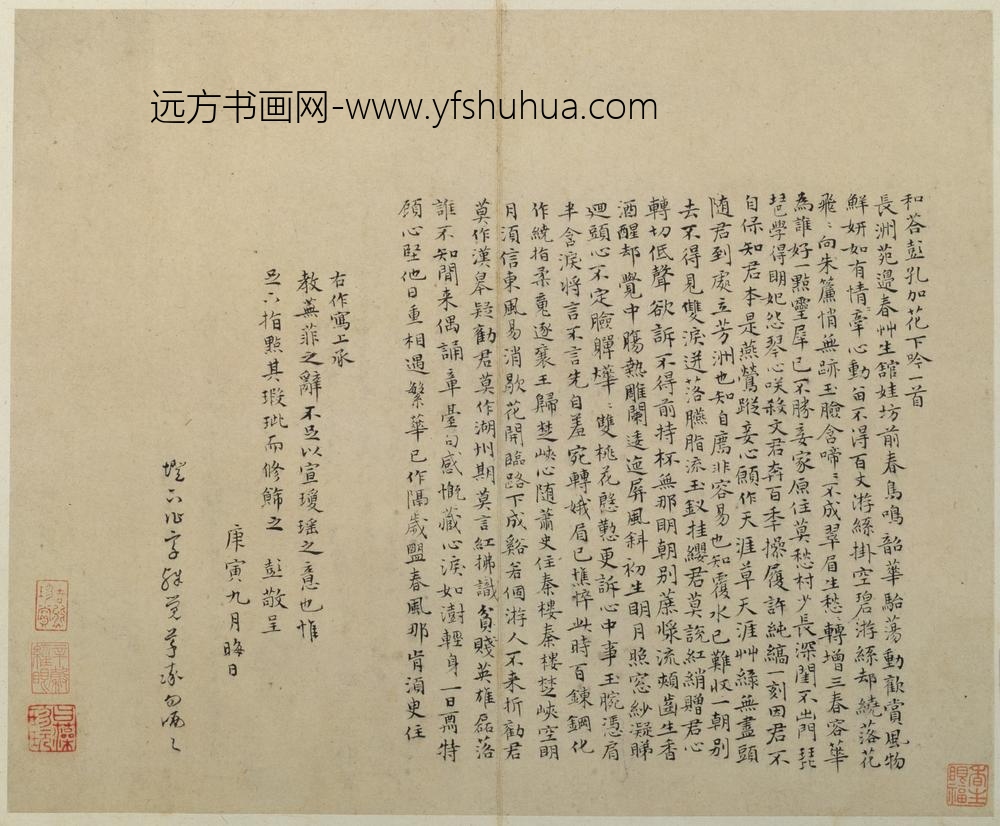 远方书画网-www.yfshuhua.com
和荅彭孔加花下吟一首
長洲苑邊春艸生舘娃坊前春鳥鳴韶華駘蕩動歡賞風物
鮮妍如有情牽心動留不得百丈游絲掛空碧游絲却繞落花
飛飛向朱簾悄無跡玉臉含啼啼不成翠眉生愁愁轉增三春容華
為誰好一點靈犀已不勝妾家原住莫愁村少長深閨不出門琵
琶學得明妃怨琴心咲殺文君奔百年操履許純縞一刻因君不
自保知君本是燕鶯蹤妾心願作天涯草天涯艸綠無盡頭
随君到處立芳洲也知自薦非容易也知覆水已難收一朝別
去不得見雙淚迸落臙脂流玉釵挂纓君莫說紅綃贈君心
轉切低聲欲訴不得前持杯無那明朝别蔗漿流頰齒生香
酒醒却覺中腸熱雕闌逶迤屏風斜初生明月照窓紗凝睇
迴頭心不定臉嚲燁燁雙桃花慇懃更訴心中事玉腕憑肩
半含淚將言不言先自羞宛轉娥眉已憔悴此時百鍊鋼化
作繞指柔魂逐襄王歸楚峽心随蕭史住秦樓秦樓楚峽空明
月須信東風易消歇花開臨路下成谿若個游人不来折勸君
莫作漢皋疑勸君莫作湖州期莫言紅拂識貧賤英雄磊落
誰不知閒来偶誦章臺句感慨藏心淚如澍輕身一日
顧心堅他日重相遇繁華已作隔歲盟春風那肯須臾住
右作寫上承
教蕪菲之辭不足以宣瓊瑤之意也惟
足下指點其瑕玼而修飾之 彭敬呈
庚寅九月晦日